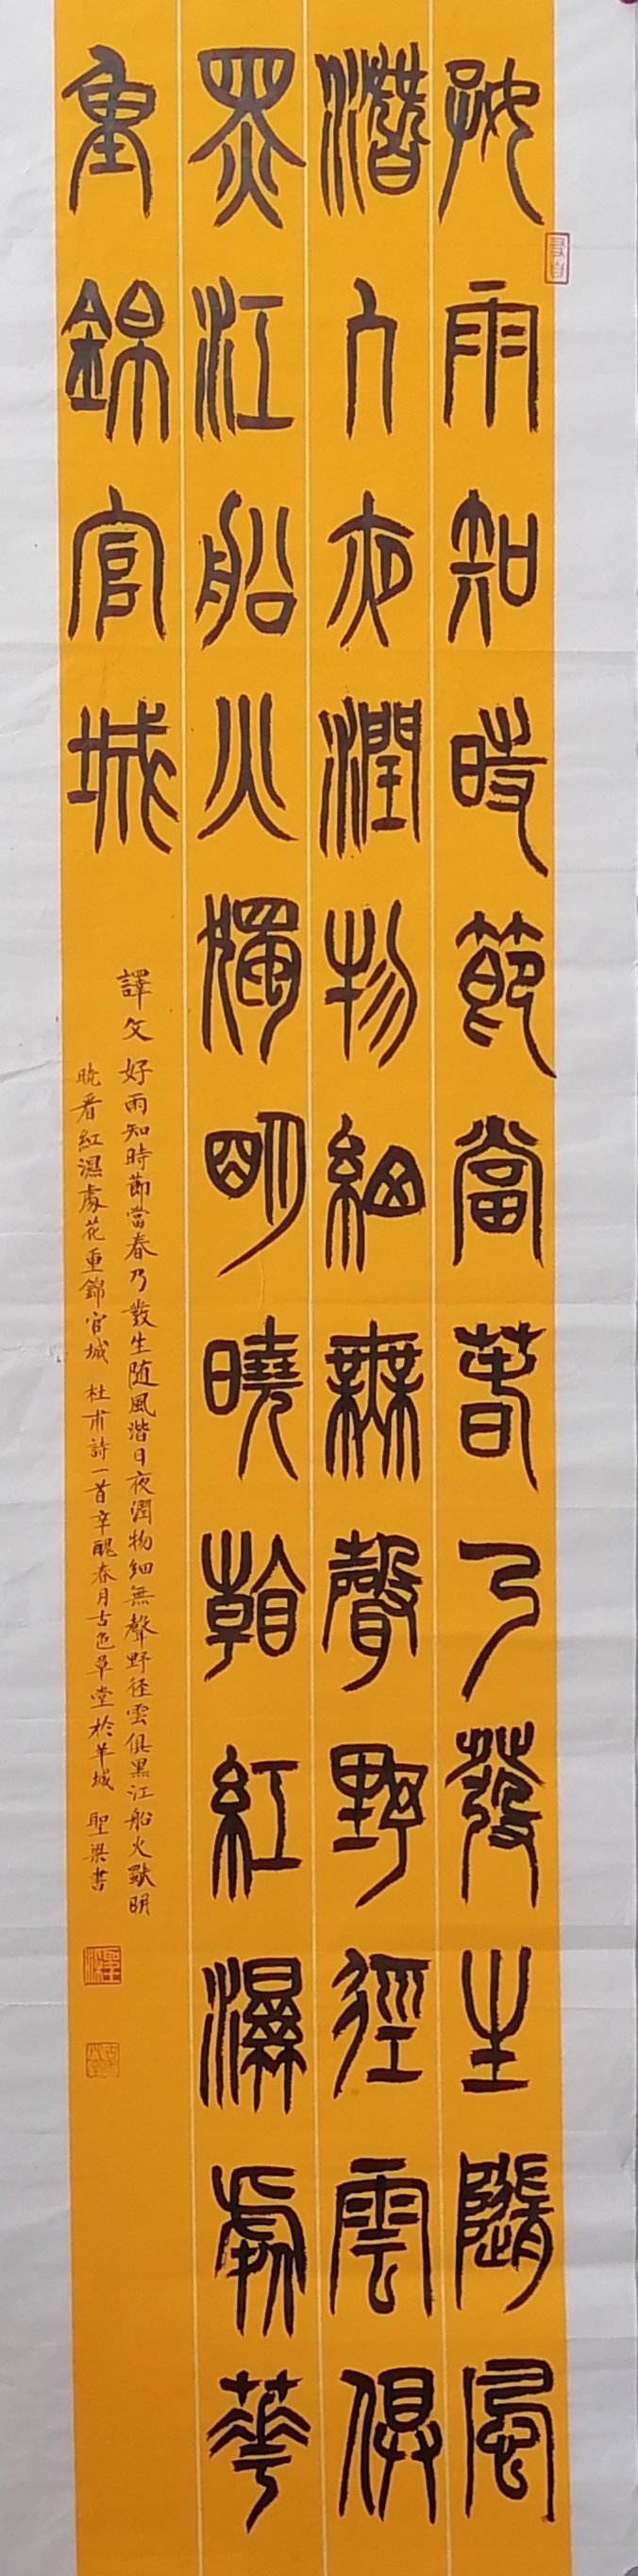 好雨知時節當春乃發生隨風
潛入夜潤物細無聲野徑雲俱
黑江船火獨明曉看紅濕處華
重錦官城
譯文 好雨知時節當春乃發生随風潛日夜潤物細無聲野径雲俱黑江船火獸明
晚看紅濕處花重錦官城 杜甫詩一首辛醜春月古色草堂於羊城 聖梁書